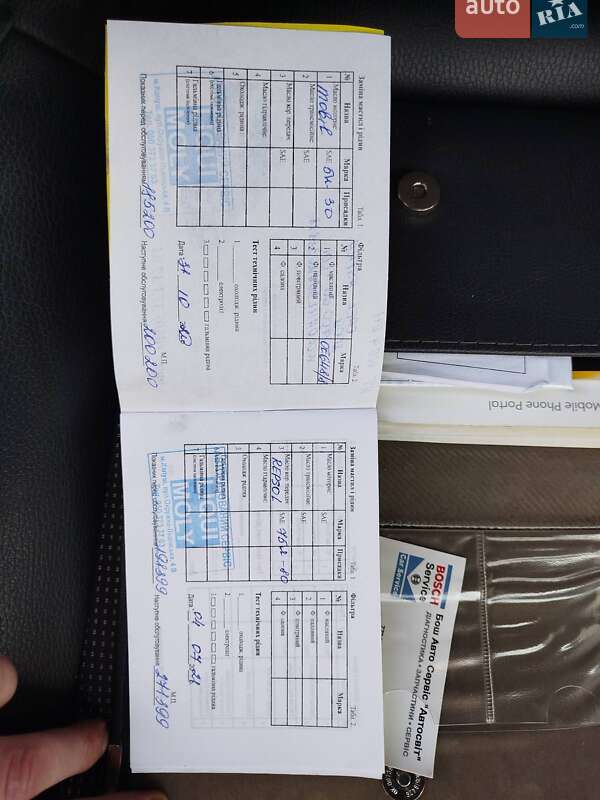 auto RIA
.com
Заміна мастил і рідин
Табл. 1.
№ Назва Марка Присадки
1 Масло моторне: SAE 5W-30
2 Масло трансмісійне: SAE
3 Масло кор. передач SAE
4 Масло гідравлічне:
5 Охолодж. рідина
6 Гальмівна рідина
7 Гальмівна рідина
LIQUI
MOLY
Показник перед обслуговуванням 195200 Наступне обслуговування 200200
Фільтра
Табл. 2.
№ Назва Марка
1 Ф. масляний
2 Ф. паливний
3 Ф. повітряний
4 Ф. салона
Тест технічних рідин
1. охолодж. рідина
2. електроліт
3. гальмівна рідина
Дата 31 10
М.П.
Заміна мастил і рідин
Табл. 1.
№ Назва Марка Присадки
1 Масло моторне: SAE
2 Масло трансмісійне: SAE
3 Масло кор. передач SAE 75W-80
REPSOL
4 Масло гідравлічне:
5 Охолодж. рідина
7 Гальмівна рідина
LIQUI
MOLY
Показник перед обслуговуванням 191399 Наступне обслуговування 271399
Фільтра
Табл. 2.
№ Назва Марка
1 Ф. масляний
2 Ф. паливний
3 Ф. повітряний
4 Ф. салона
Тест технічних рідин
1. охолодж. рідина
2. електроліт
3. гальмівна рідина
Дата 04 07
М.П.
Mobile Phone Portal
BOSCH
Service
Car Service
Бош Авто Сервіс "Автосвіт"
ДІАГНОСТИКА • ЗАПЧАСТИНИ • СЕРВІС